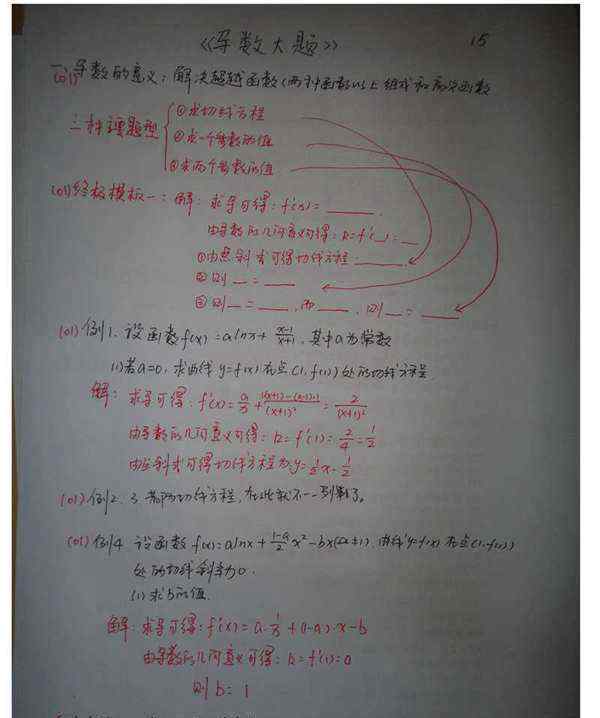 《导数大题》 15
一、导数的意义：解决超越函数(两种函数以上组成和高次函数
(01)
三种课题型
①求切线方程
②求一个参数的值
③求两个参数的值
(01)终极模板一：解：求导可得：f'(x)=____.
由导数的几何意义可得：k=f'(_)=__
①由点斜式可得切线方程：____.
②则__=___
③则__=___,而___,则__=___
(01)例1.设函数f(x)=alnx+(x-1)/(x+1),其中a为常数
(1)若a=0,求曲线y=f(x)在点(1,f(1))处的切线方程
解：求导可得：
由导数的几何意义可得：k=f'(1)=2/4=1/2
由点斜式可得切线方程为y=1/2x-1/2
(01)例2、3都为切线方程,在此就不一一列举了。
(01)例4 设函数f(x)=alnx+(1-a)/2 x²-bx(a≠1).曲线y=f(x)在点(1,f(1))
处的切线斜率为0.
(1)求b的值.
解：求导可得：f'(x)=a·1/x+(1-a)·x-b
由导数的几何意义可得：k=f'(1)=0
则b=1